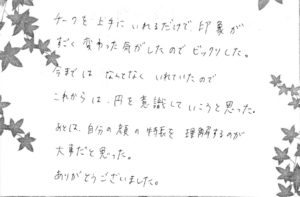 チークを上手にいれるだけで印象が
すごく変わった気がしたのでビックリした。
今までは なんとなく いれていたので
これからは、円を意識していこうと思った。
あとは、自分の顔の特徴を理解するのが
大事だと思った。
ありがとうございました。